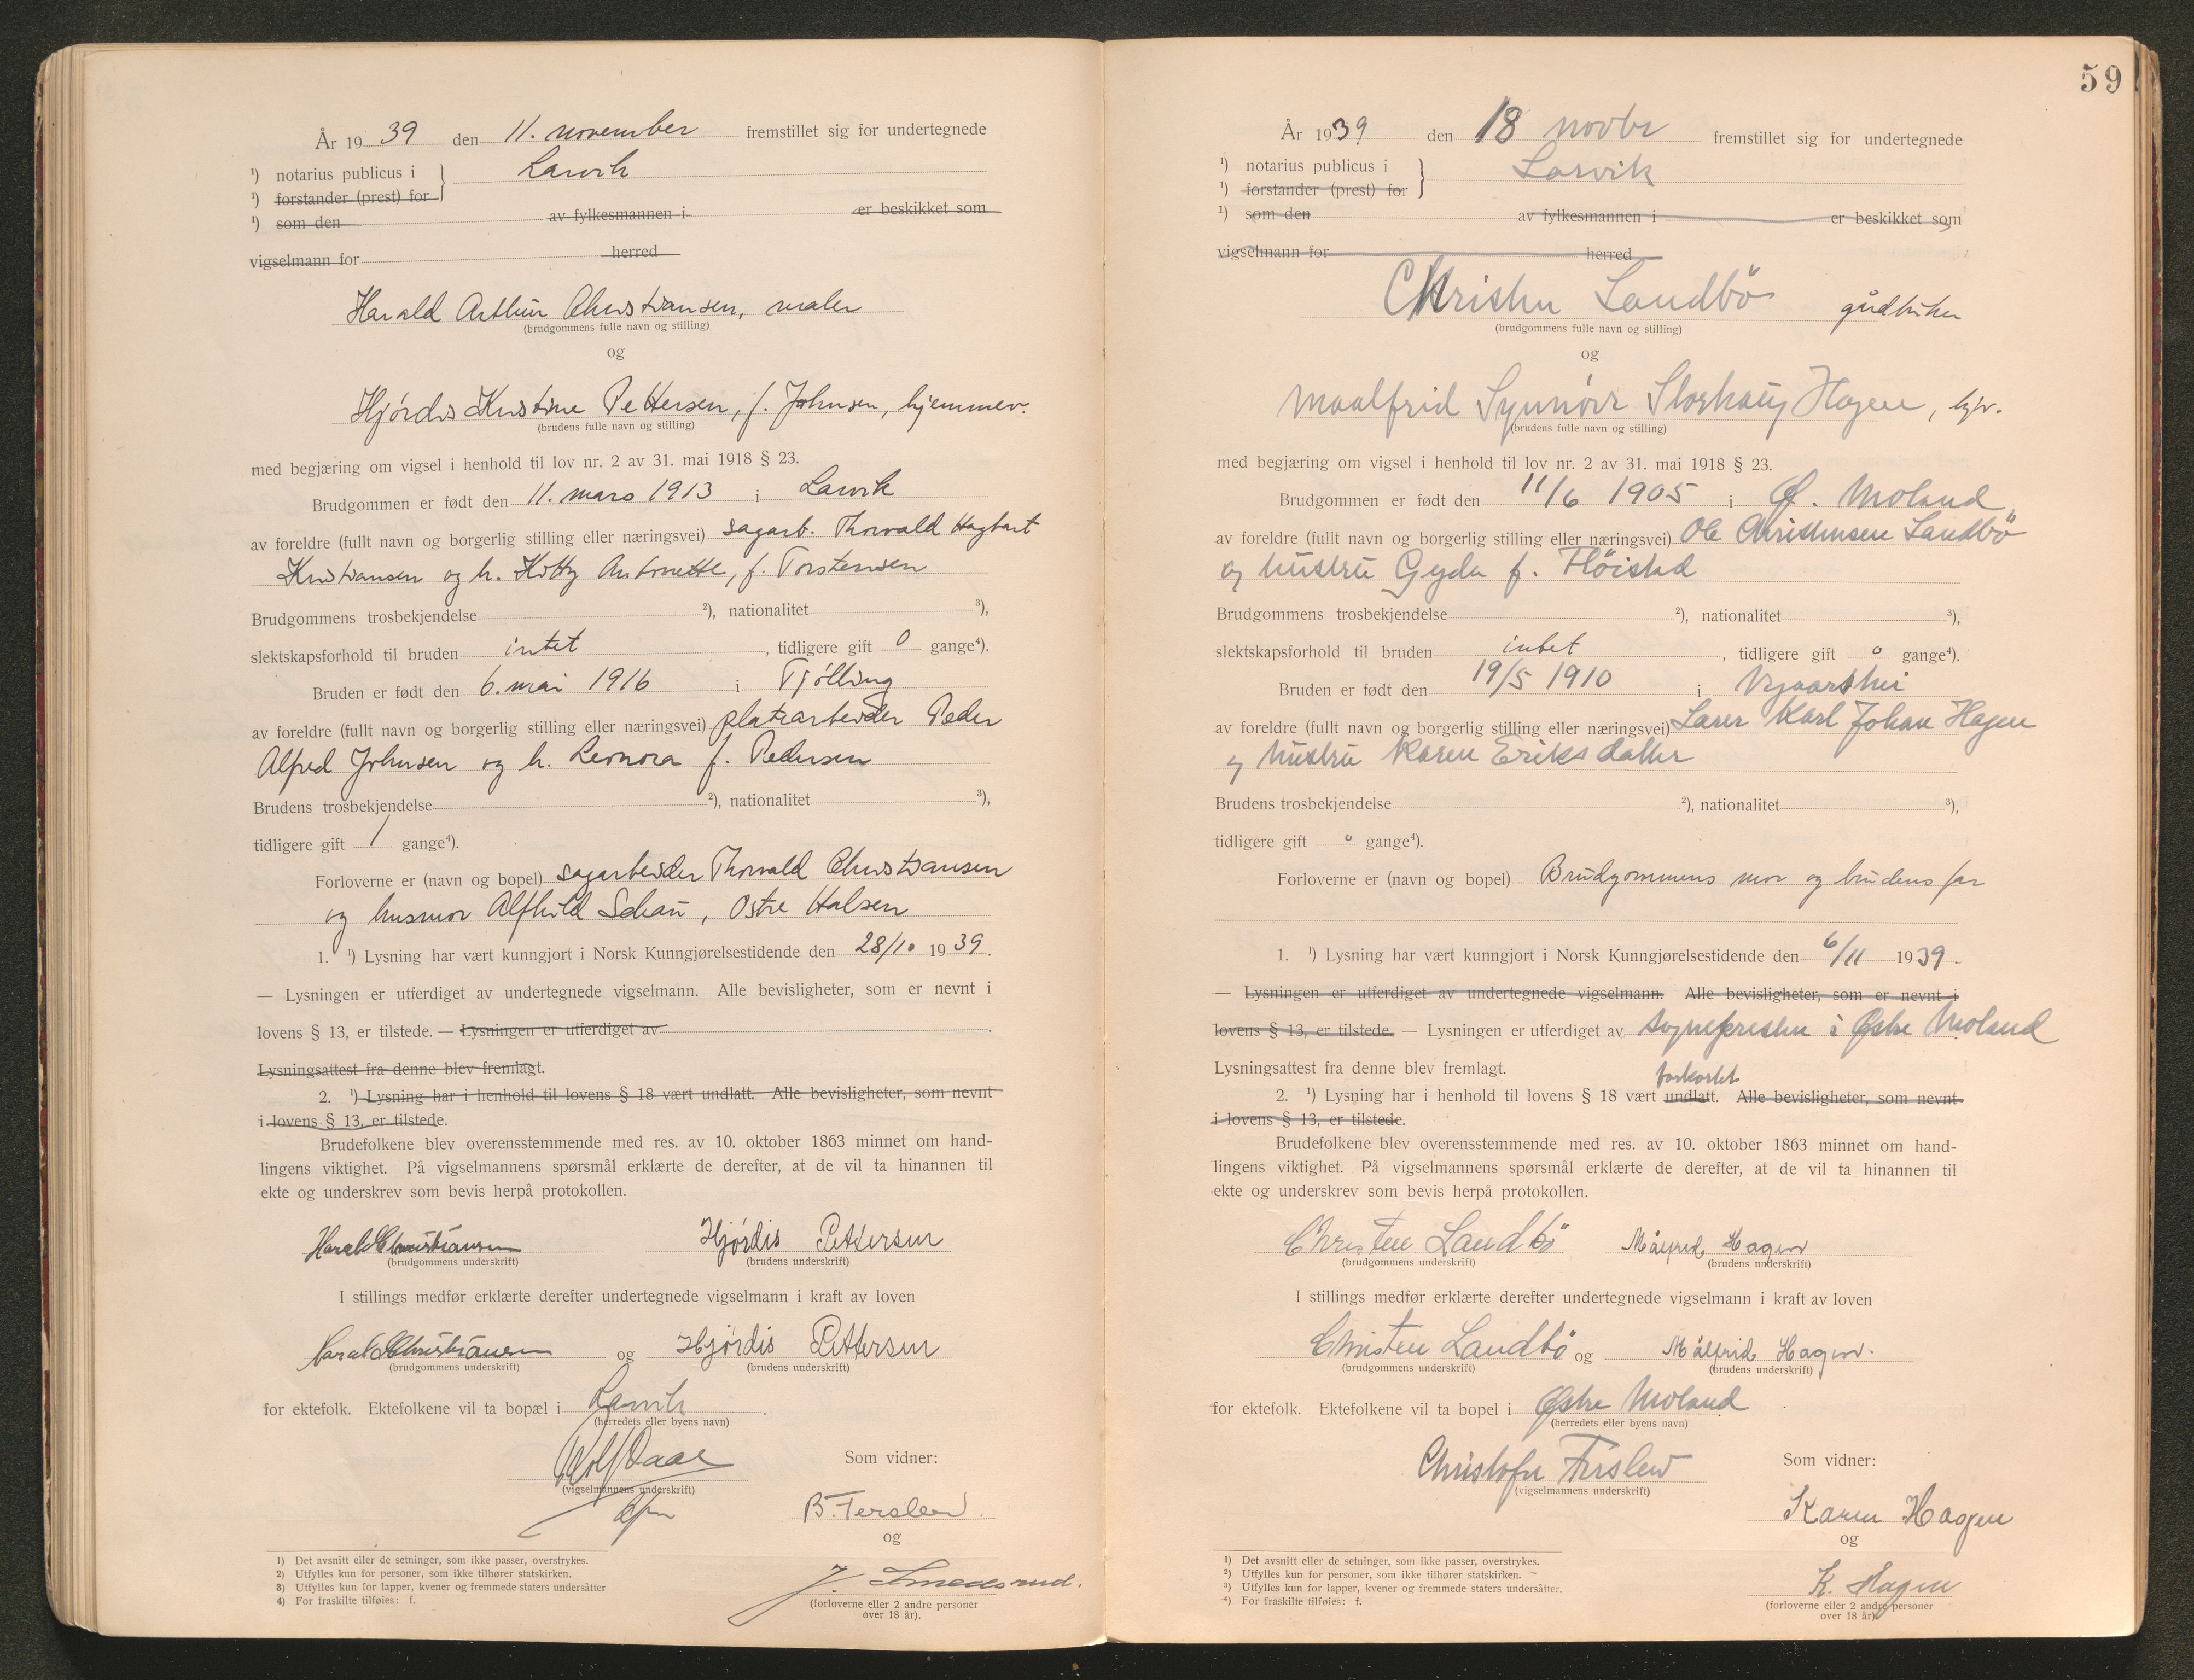 År 19 39 den 11. november fremstillet sig for undertegnede
¹) notarius publicus i } Larvik
¹) forstander (prest) for
¹) som den av fylkesmannen i er beskikket som
vigselmann for herred
Harald Arthur Christiansen, maler
(brudgommens fulle navn og stilling)
og
Hjórdis Kristine Pettersen, f. Johnsen, hjemmev.
(brudens fulle navn og stilling)
med begjæring om vigsel i henhold til lov nr. 2 av 31. mai 1918 § 23.
Brudgommen er født den 11. mars 1913 i Larvik
av foreldre (fullt navn og borgerlig stilling eller næringsvei) sagarb. Thorvald Hagbart
Kristiansen og h. Kitty Antonette, f. Torstensen
Brudgommens trosbekjendelse ²), nationalitet ³),
slektskapsforhold til bruden intet, tidligere gift 0 gange⁴).
Bruden er født den 6. mai 1916 i Tjólling
av foreldre (fullt navn og borgerlig stilling eller næringsvei) platearbeider Peder
Alfred Johnsen og h. Leonora f. Pedersen
Brudens trosbekjendelse ²), nationalitet ³),
tidligere gift 1 gange⁴).
Forloverne er (navn og bopel) sagarbeider Thorvald Christiansen
og husmor Alfhild Schau, Ostre Halsen
1. ¹) Lysning har vært kunngjort i Norsk Kunngjørelsestidende den 28/10 19 39.
— Lysningen er utferdiget av undertegnede vigselmann. Alle bevisligheter, som er nevnt i
lovens § 13, er tilstede. — Lysningen er utferdiget av .
Lysningsattest fra denne blev fremlagt.
2. ¹) Lysning har i henhold til lovens § 18 vært undlatt. Alle bevisligheter, som nevnt
i lovens § 13, er tilstede.
Brudefolkene blev overensstemmende med res. av 10. oktober 1863 minnet om hand-
lingens viktighet. På vigselmannens spørsmål erklærte de derefter, at de vil ta hinannen til
ekte og underskrev som bevis herpå protokollen.
Harald Christiansen Hjórdis Pettersen
(brudgommens underskrift) (brudens underskrift)
I stillings medfør erklærte derefter undertegnede vigselmann i kraft av loven
Harald Christiansen og Hjórdis Pettersen
(brudgommens underskrift) (brudens underskrift)
for ektefolk. Ektefolkene vil ta bopæl i Larvik.
(herredets eller byens navn)
Som vidner:
(vigselmannens underskrift)
B. Terslew.
og
J. Smedsrud.
(forloverne eller 2 andre personer
over 18 år).
1) Det avsnitt eller de setninger, som ikke passer, overstrykes.
2) Utfylles kun for personer, som ikke tilhører statskirken.
3) Utfylles kun for lapper, kvener og fremmede staters undersåtter
4) For fraskilte tilføies: f.
59
År 1939 den 18 novbr fremstillet sig for undertegnede
¹) notarius publicus i } Larvik
¹) forstander (prest) for
¹) som den av fylkesmannen i er beskikket som
vigselmann for herred
Christen Landbö gårdbruker
(brudgommens fulle navn og stilling)
og
Maalfrid Synnöve Storhaug Hagen, hjv.
(brudens fulle navn og stilling)
med begjæring om vigsel i henhold til lov nr. 2 av 31. mai 1918 § 23.
Brudgommen er født den 11/6 1905 i Ø. Moland
av foreldre (fullt navn og borgerlig stilling eller næringsvei) Ole Christensen Landbö
og hustru Gyda f. Flöistad
Brudgommens trosbekjendelse ²), nationalitet ³),
slektskapsforhold til bruden intet, tidligere gift 0 gange⁴).
Bruden er født den 19/5 1910 i Vegaarshei
av foreldre (fullt navn og borgerlig stilling eller næringsvei) Lærer Karl Johan Hagen
og hustru Karen Eriksdatter
Brudens trosbekjendelse ²), nationalitet ³),
tidligere gift 0 gange⁴).
Forloverne er (navn og bopel) Brudgommens mor og brudens far
1. ¹) Lysning har vært kunngjort i Norsk Kunngjørelsestidende den 6/11 1939.
— Lysningen er utferdiget av undertegnede vigselmann. Alle bevisligheter, som er nevnt i
lovens § 13, er tilstede. — Lysningen er utferdiget av sognepresten i Østre Moland
Lysningsattest fra denne blev fremlagt.
forkortet
2. ¹) Lysning har i henhold til lovens § 18 vært undlatt. Alle bevisligheter, som nevnt
i lovens § 13, er tilstede.
Brudefolkene blev overensstemmende med res. av 10. oktober 1863 minnet om hand-
lingens viktighet. På vigselmannens spørsmål erklærte de derefter, at de vil ta hinannen til
ekte og underskrev som bevis herpå protokollen.
Christen Landbö Målfrid Hagen
(brudgommens underskrift) (brudens underskrift)
I stillings medfør erklærte derefter undertegnede vigselmann i kraft av loven
Christen Landbö og Målfrid Hagen.
(brudgommens underskrift) (brudens underskrift)
for ektefolk. Ektefolkene vil ta bopel i Østre Moland
(herredets eller byens navn)
Christofer Terslew Som vidner:
(vigselmannens underskrift)
Karen Hagen
og
K. Hagen
(forloverne eller 2 andre personer
over 18 år).
1) Det avsnitt eller de setninger, som ikke passer, overstrykes.
2) Utfylles kun for personer, som ikke tilhører statskirken.
3) Utfylles kun for lapper, kvener og fremmede staters undersåtter.
4) For fraskilte tilføies: f.